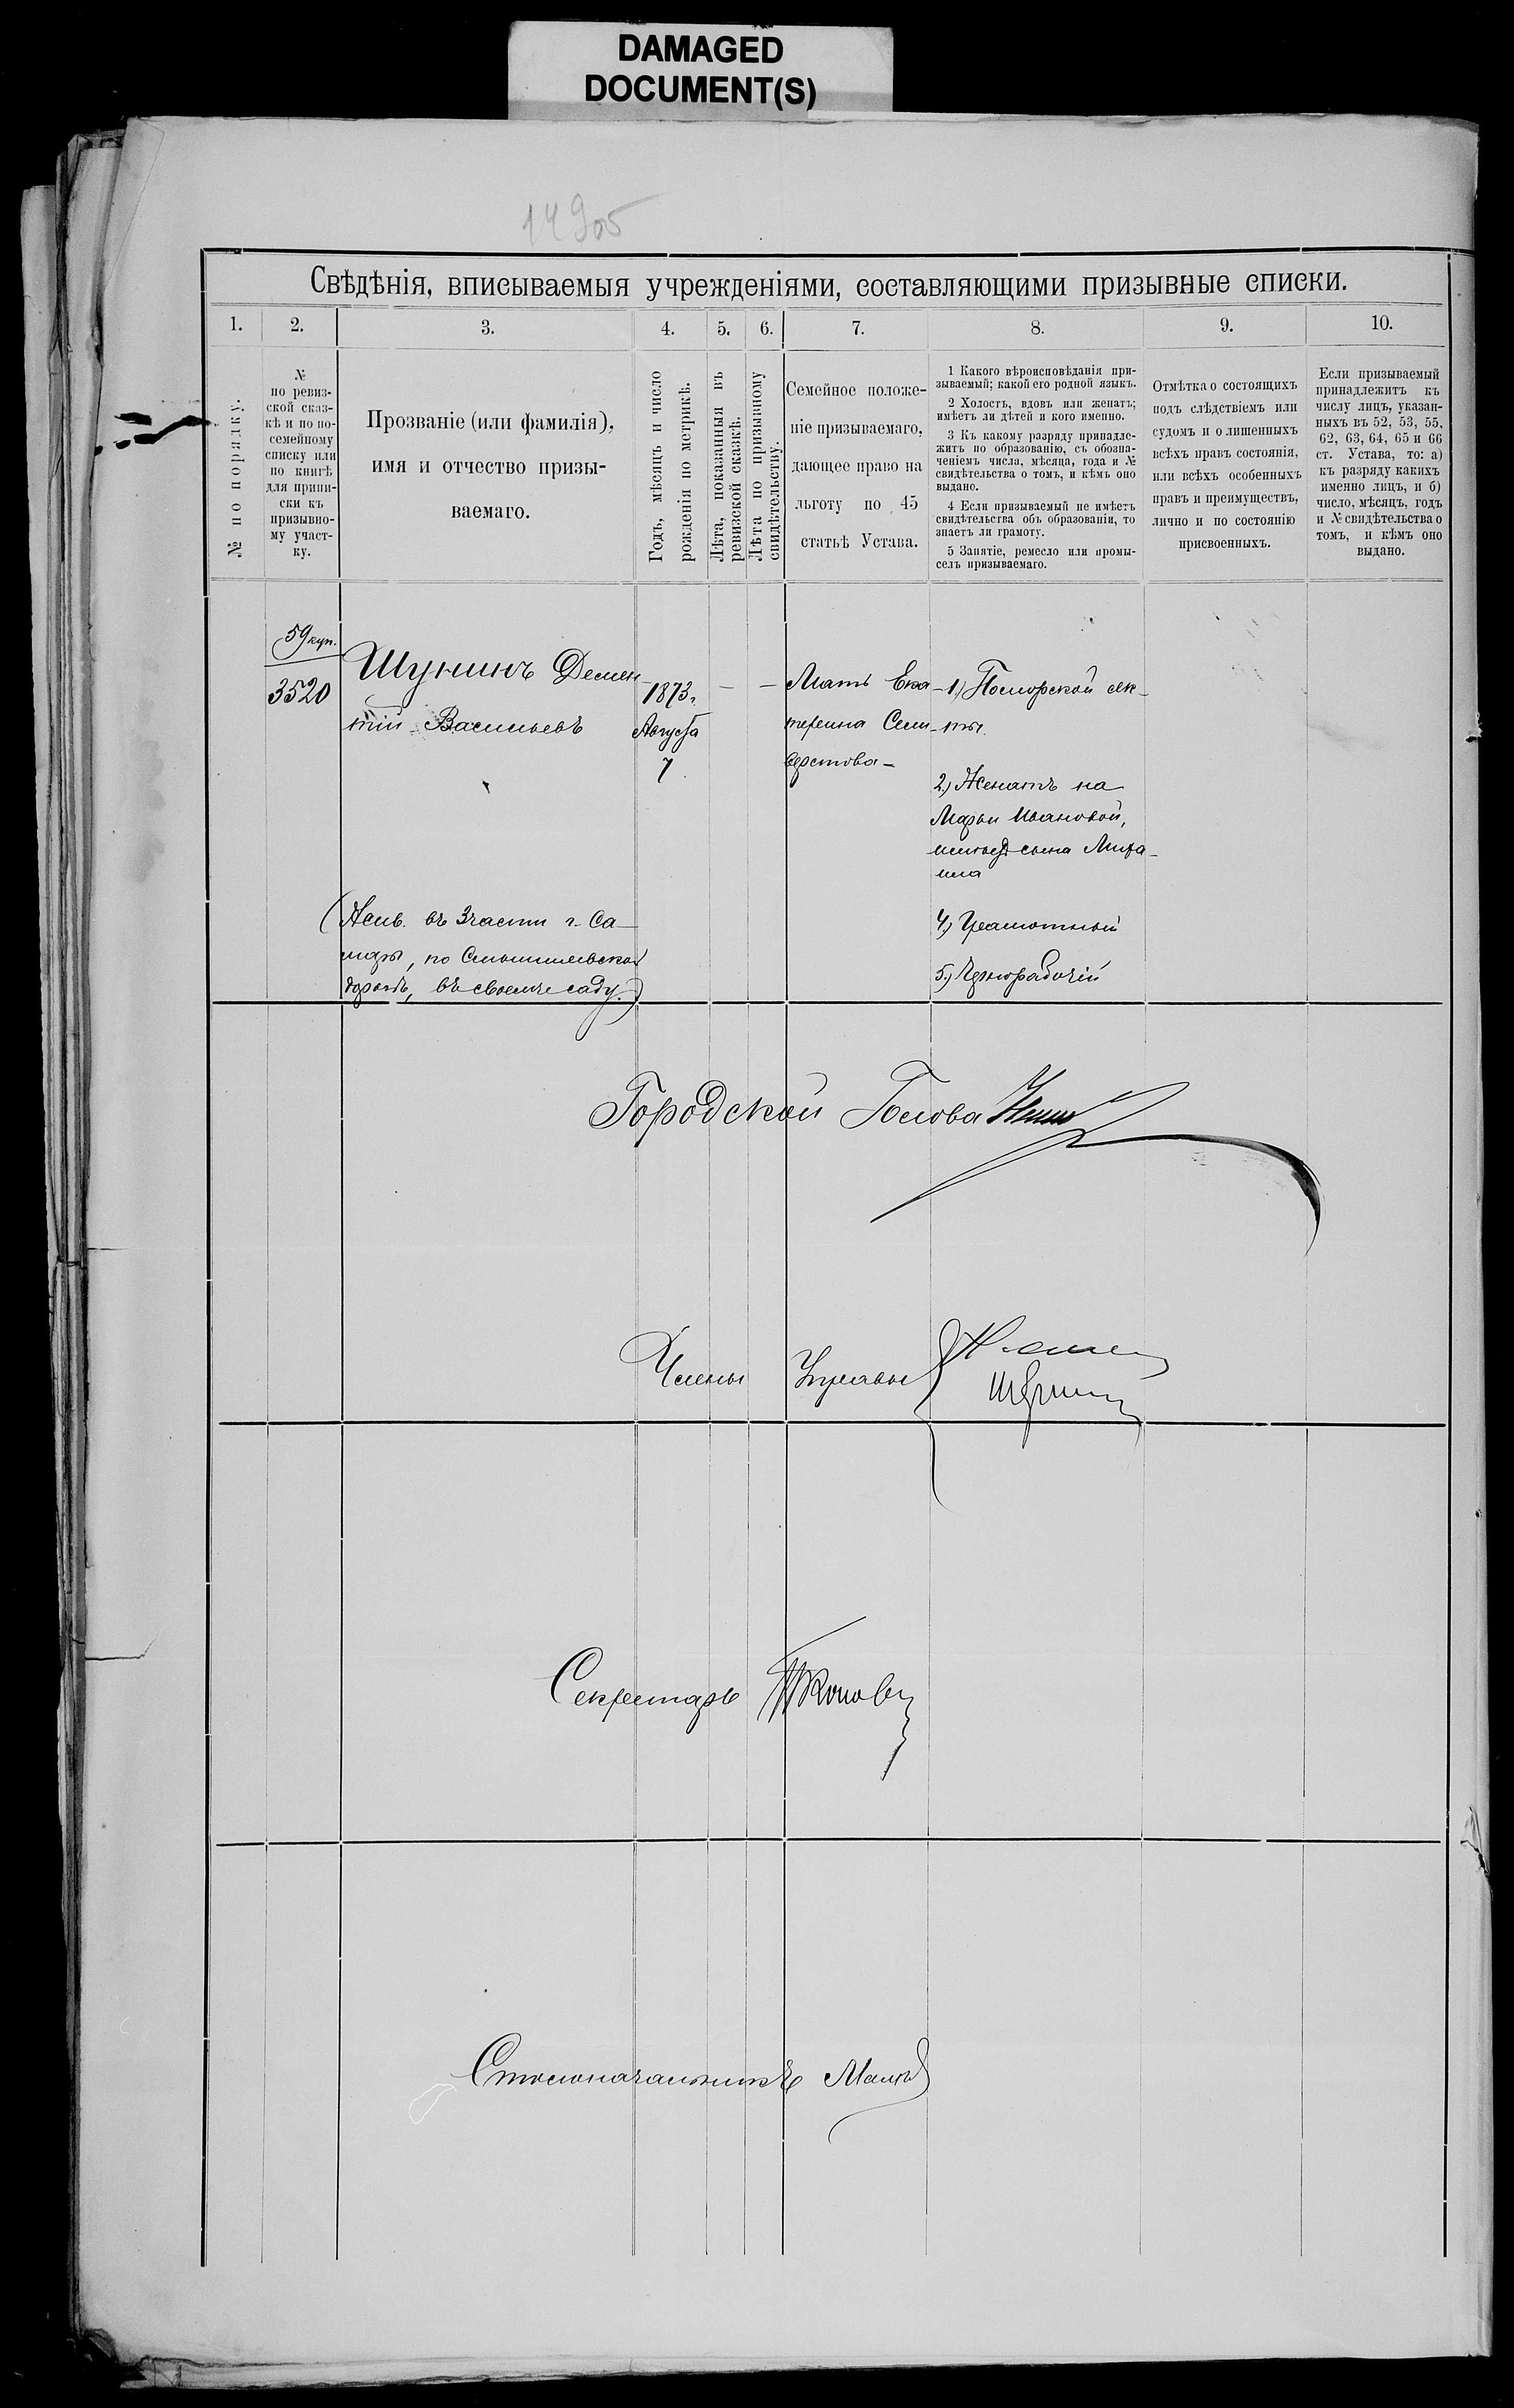 DAMAGED
DOCUMENT(S)
14905
Свѣдѣнія, вписываемыя учрежденіями, составляющими призывные списки.
1.
2.
3.
4.
5.
6.
7.
8.
9.
10.
№ по порядку.
№
по ревиз-
ской сказ-
кѣ и по по-
семейному
списку или
по книгѣ
для припи-
ски къ
призывно-
му участ-
ку.
Прозваніе (или фамилія),
имя и отчество призы-
ваемаго.
Годъ, мѣсяцъ и число
рожденія по метрикѣ.
Лѣта, показанныя въ
ревизской сказкѣ.
Лѣта по призывному
свидѣтельству.
Семейное положе-
ніе призываемаго,
дающее право на
льготу по 45
статьѣ Устава.
1 Какого вѣроисповѣданія при-
зываемый; какой его родной языкъ.
2 Холостъ, вдовъ или женатъ;
имѣетъ ли дѣтей и кого именно.
3 Къ какому разряду принадле-
житъ по образованію, съ обозна-
ченіемъ числа, мѣсяца, года и №
свидѣтельства о томъ, и кѣмъ оно
выдано.
4 Если призываемый не имѣетъ
свидѣтельства объ образованіи, то
знаетъ ли грамоту.
5 Занятіе, ремесло или промы-
селъ призываемаго.
Отмѣтка о состоящихъ
подъ слѣдствіемъ или
судомъ и о лишенныхъ
всѣхъ правъ состоянія,
или всѣхъ особенныхъ
правъ и преимуществъ,
лично и по состоянію
присвоенныхъ.
Если призываемый
принадлежитъ къ
числу лицъ, указан-
ныхъ въ 52, 53, 55,
62, 63, 64, 65 и 66
ст. Устава, то: а)
къ разряду какихъ
именно лицъ, и б)
число, мѣсяцъ, годъ
и № свидѣтельства о
томъ, и кѣмъ оно
выдано.
59 куп.
3520
Шунинъ Демен-
тій Васильевъ
(Жив. въ 3 части г. Са-
мары, по Смышляевской
дорогѣ, въ своемъ саду.)
1873 г.
Августа
7
— —
Мать Ека-
терина Сели-
верстова —
1) Поморской сек-
ты.
2) Женатъ на
Марьи Ивановой,
имѣетъ сына Миха-
ила
4) Грамотный
5) Чернорабочій
Городской Голова
Члены Управы
Секретарь
Столоначальникъ